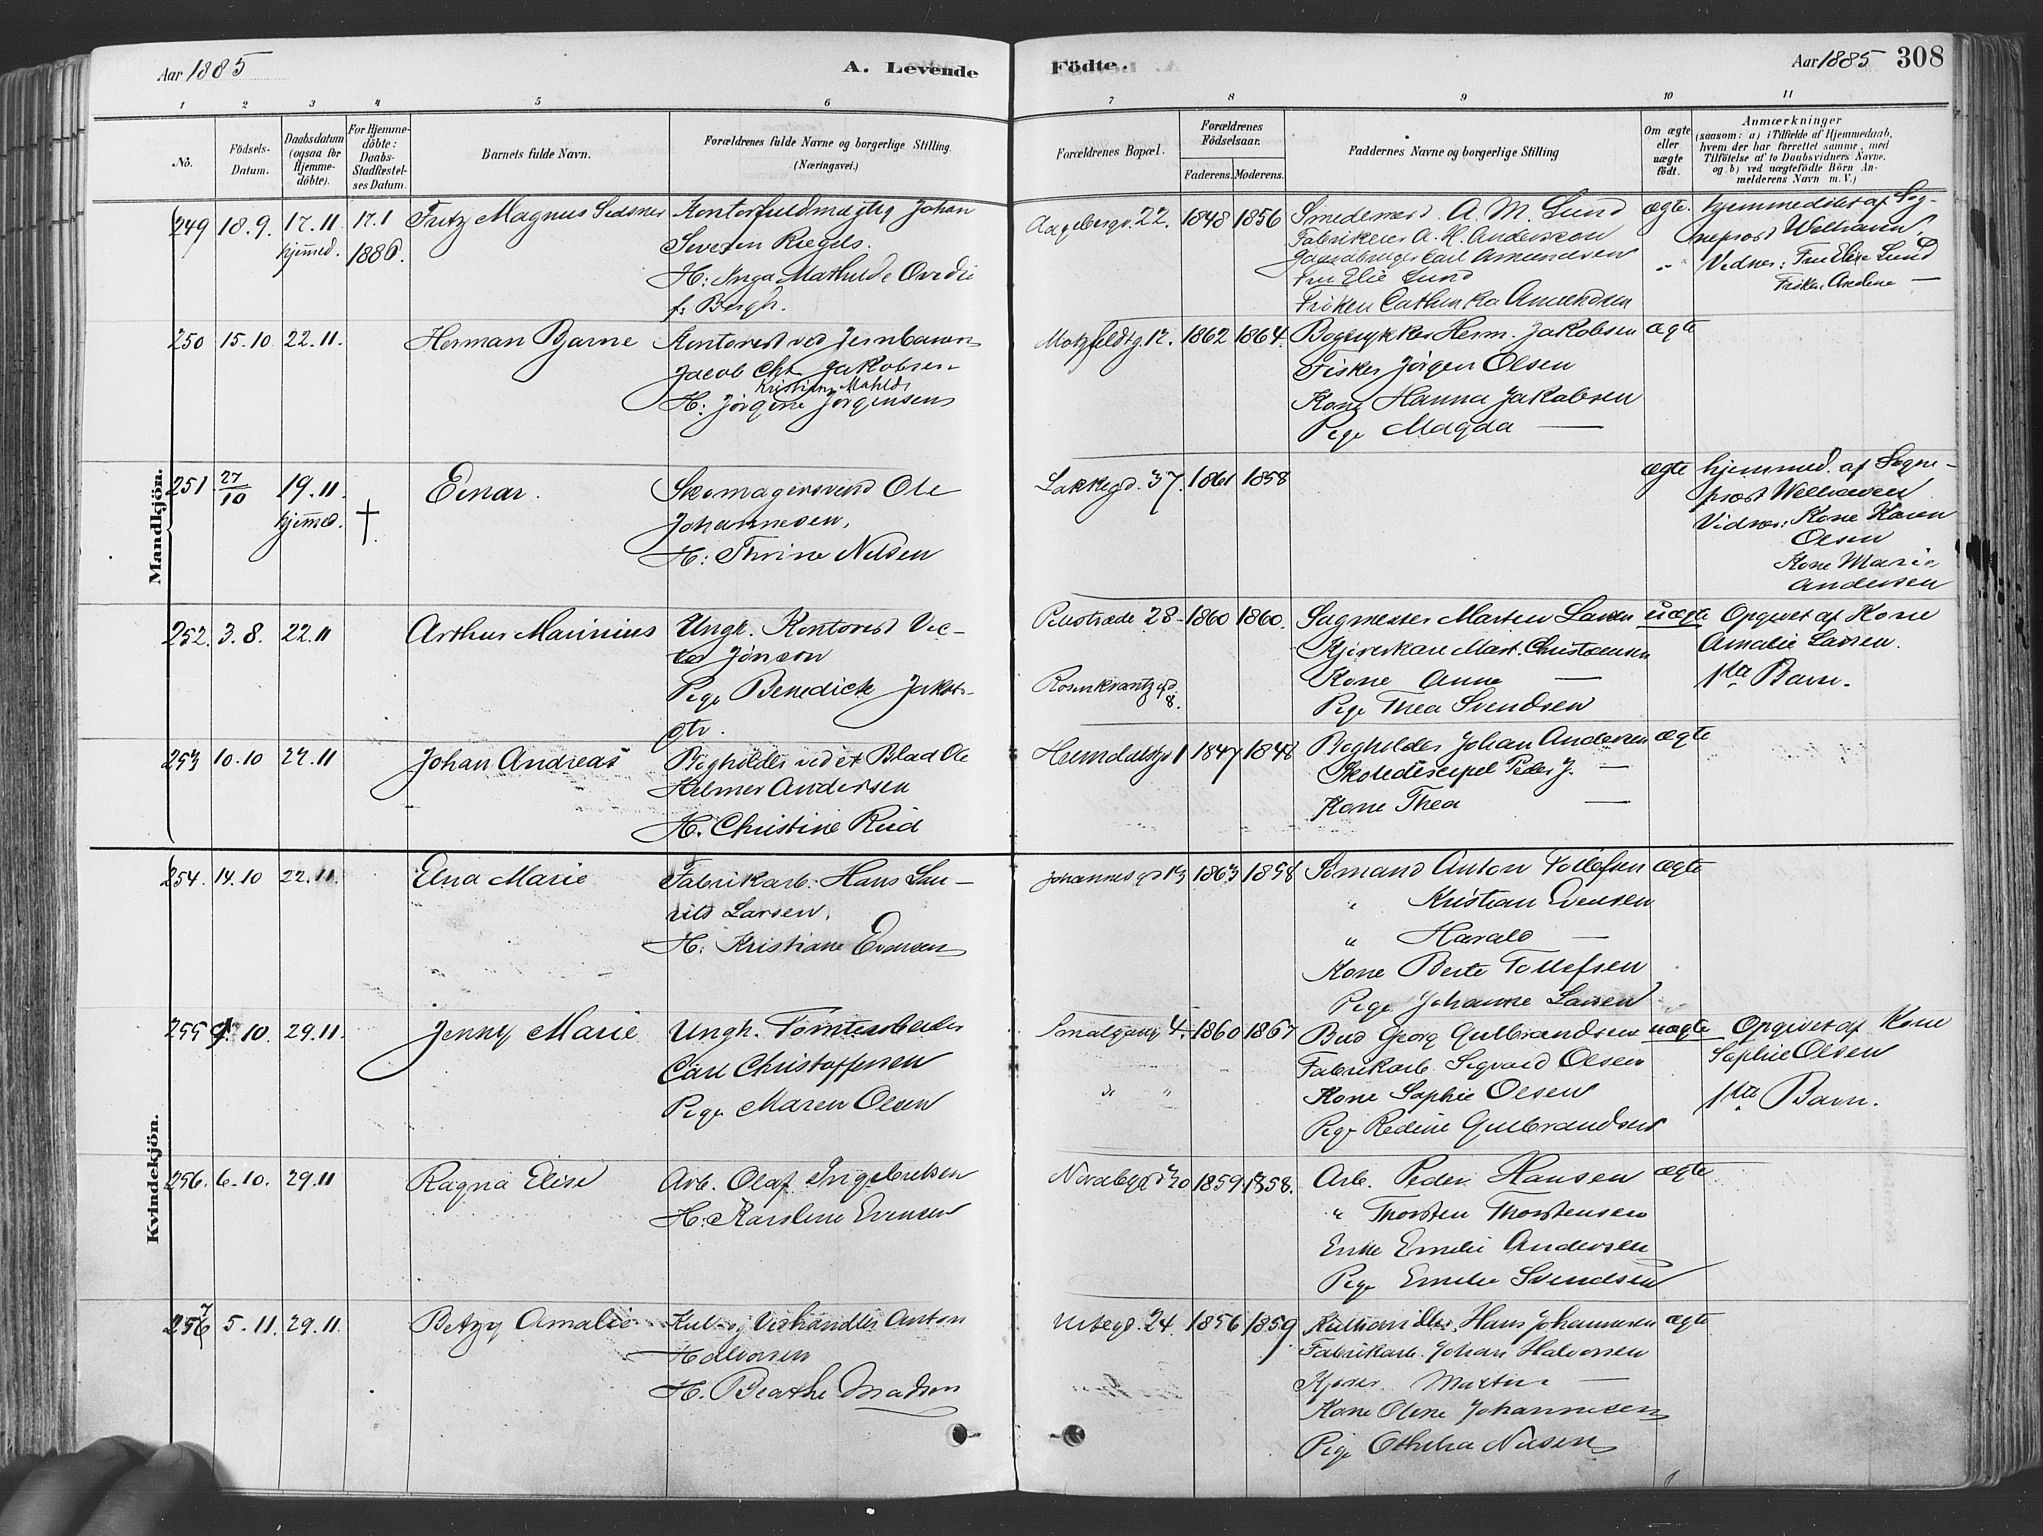 Aar 1885
A. Levende
Födte.
Aar 1885 308
1 2 3 4 5 6 7 8 9 10 11
No.
Födsels-
Datum.
Daabsdatum
(ogsaa for
Hjemme-
döbte).
For Hjemme-
döbte:
Daabs-
Stadfæstel-
ses Datum.
Barnets fulde Navn.
Forældrenes fulde Navne og borgerlige Stilling
(Næringsvei.)
Forældrenes Bopæl.
Forældrenes
Födselsaar.
Faderens. Moderens.
Faddernes Navne og borgerlige Stilling
Om ægte
eller
uægte
födt.
Anmærkninger
(saasom: a) i Tilfælde af Hjemmedaab,
hvem der har forrettet samme, med
Tilföielse af to Daabsvidners Navne,
og b) ved uægtefödte Börn An-
melderens Navn m. V.)
Mandkjön.
249 18.9. 17.11 hjemmed. 17.1 1886.
Fritz Magnus
Kontorfuldmægtig Johan
Severin Riegels.
H: Inga Mathilde
f. Bergh.
22. 1848 1856
A. M. Lund
Fabrikeier A. H. Andersen
Gaardbruger Carl Amundsen
Fru Elie Lund
Frøken Cathinka Amundsen
ægte.
hjemmedöbt af Sog-
neprost Welhaven.
Vidner: Fru Elise Lund
Frøken
250 15.10 22.11.
Herman Bjarne
Kontorist ved Jernbanen
Jacob Chr. Jakobsen
H: Jörgine Jörgensen
Motzfeldtg. 12. 1862 1864.
Bogtrykker Herm. Jakobsen
Fisker Jörgen Olsen
Kone Hanna Jakobsen
Pige Magda —
ægte
251 27/10 19.11 hjemmed. †
Einar.
Skomagersvend Ole
Johannesen,
H: Thrine Nilsen
Lakkegd. 37. 1861 1858
ægte
hjemmed. af Sogne-
prost Welhaven
Vidner: Kone Karen
Olsen
Kone Marie
Andersen
252. 3.8. 22.11
Arthur Marinius
Ungk. Kontorist Vic-
tor Jönson
Pige Benedicte Jakobs-
dtr.
Pilestræde 28 1860 1860.
Rosenkrantzgd. 8.
Sagmester Martin Larsen
Mart. Christensen
Kone Anne —
Pige Thea Svendsen
uægte
Opgivet af Kone
Amalie Larsen.
1ste Barn.
253 10.10 22.11
Johan Andreas
Bogholder ved et Blad Ole
Hilmer Andersen
H. Christine Rud
Heimdalsgd 1 1847 1848
Bogholder Johan Andersen
Skolediscipel Peder J. —
Kone Thea —
ægte
Kvindekjön.
254. 14.10 22.11.
Elna Marie
Fabrikarb. Hans Lau-
rits Larsen,
H: Kristiane Evensen
Johannesgd 13 1863 1858
Sömand Anton Tollefsen
" Kristian Evensen
" Harald —
Kone Berte Tollefsen
Pige Johanne Larsen
ægte
255 9.10. 29.11.
Jenny Marie
Ungk. Tomtearbeider
Carl Christoffersen
Pige Maren Olsen
Smalgang 4. 1860 1867
" "
Bud Georg Gulbrandsen
Fabrikarb. Sigvard Olsen
Kone Sophie Olsen
Pige Redine Gulbrandsen
uægte
Opgivet af Kone
Sophie Olsen
1ste Barn.
256. 6.10. 29.11
Ragna Elise
Arb. Olaf Ingebretsen
H: Karoline Evensen
Nordbygd 30 1859 1858.
Arb. Peder Hansen
" Thorsten Thorstensen
Enke Emilie Andersen
Pige Emilie Svendsen
ægte
257 5.11. 29.11.
Betzy Amalie
Kul- og Vedhandler Anton
Halvorsen
H. Beathe Madsen
Urtegd. 24. 1856 1859
Hans Johannesen
Fabrikarb. Johan Halvorsen
Martin —
Kone Oline Johannesen
Pige Othilia Nilsen
ægte